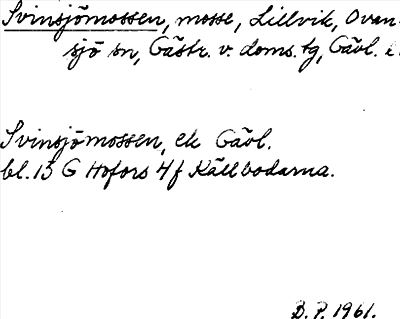 Svinsjömossen, mosse, Lillvik, Ovan-
sjö sn, Gästr. v. doms. tg, Gävl. l.
Svinsjömossen, ek Gävl.
bl. 13 G Hofors 4f Källbodarna.
B.P. 1961.